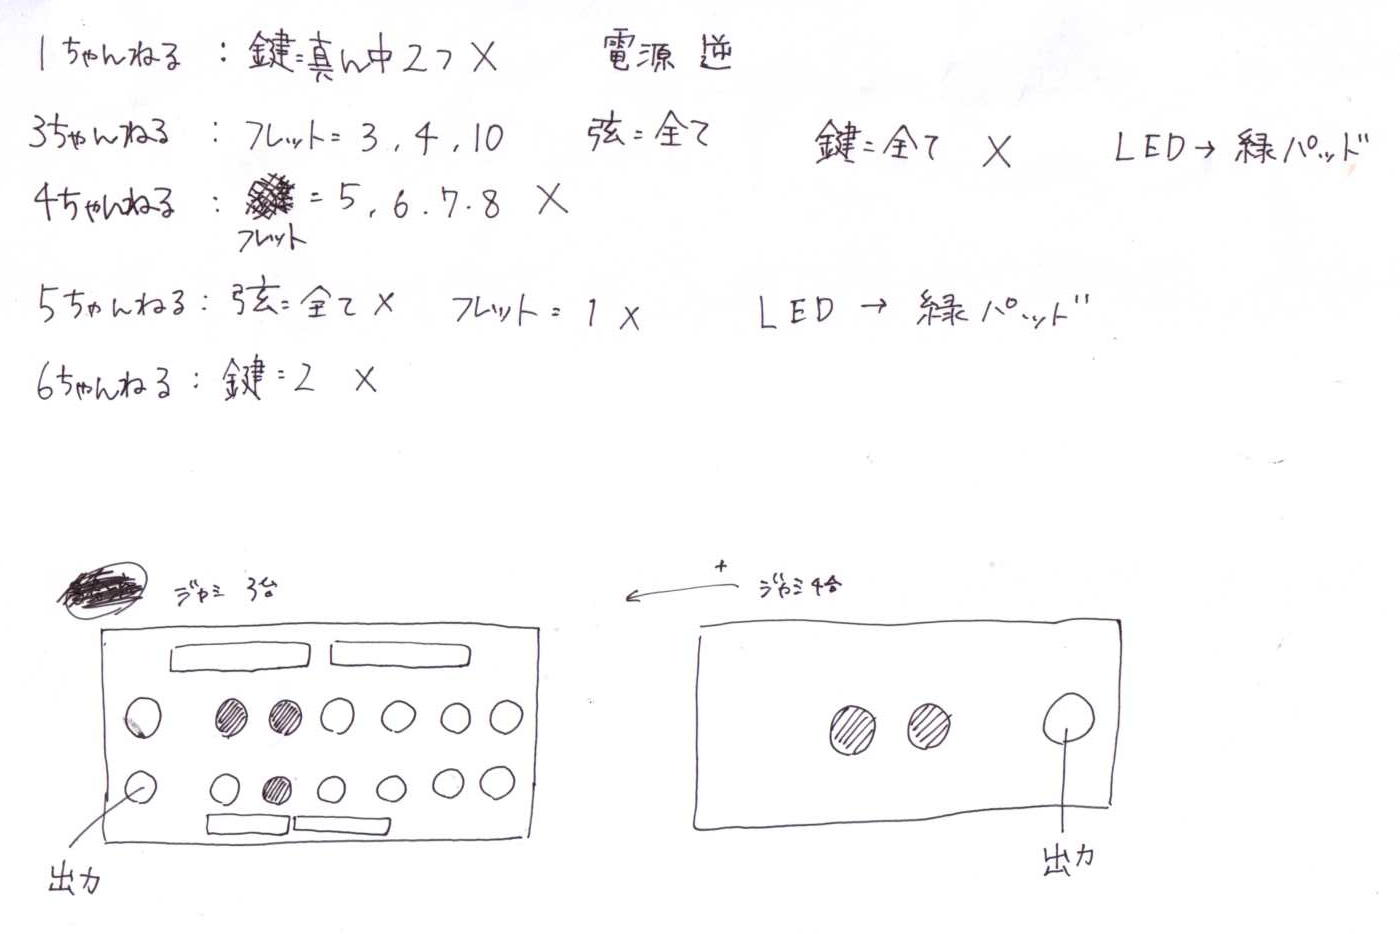 1ちゃんねる : 鍵=真ん中2つ X 電源 逆
3ちゃんねる : フレット= 3, 4, 10 弦=全て 鍵=全て X LED→ 緑パッド
4ちゃんねる : = 5, 6. 7. 8 X
フレット
5ちゃんねる : 弦=全て X フレット= 1 X LED → 緑パッド
6ちゃんねる : 鍵=2 X
ジャミ 3台
+
ジャミ 4台
出力
出力